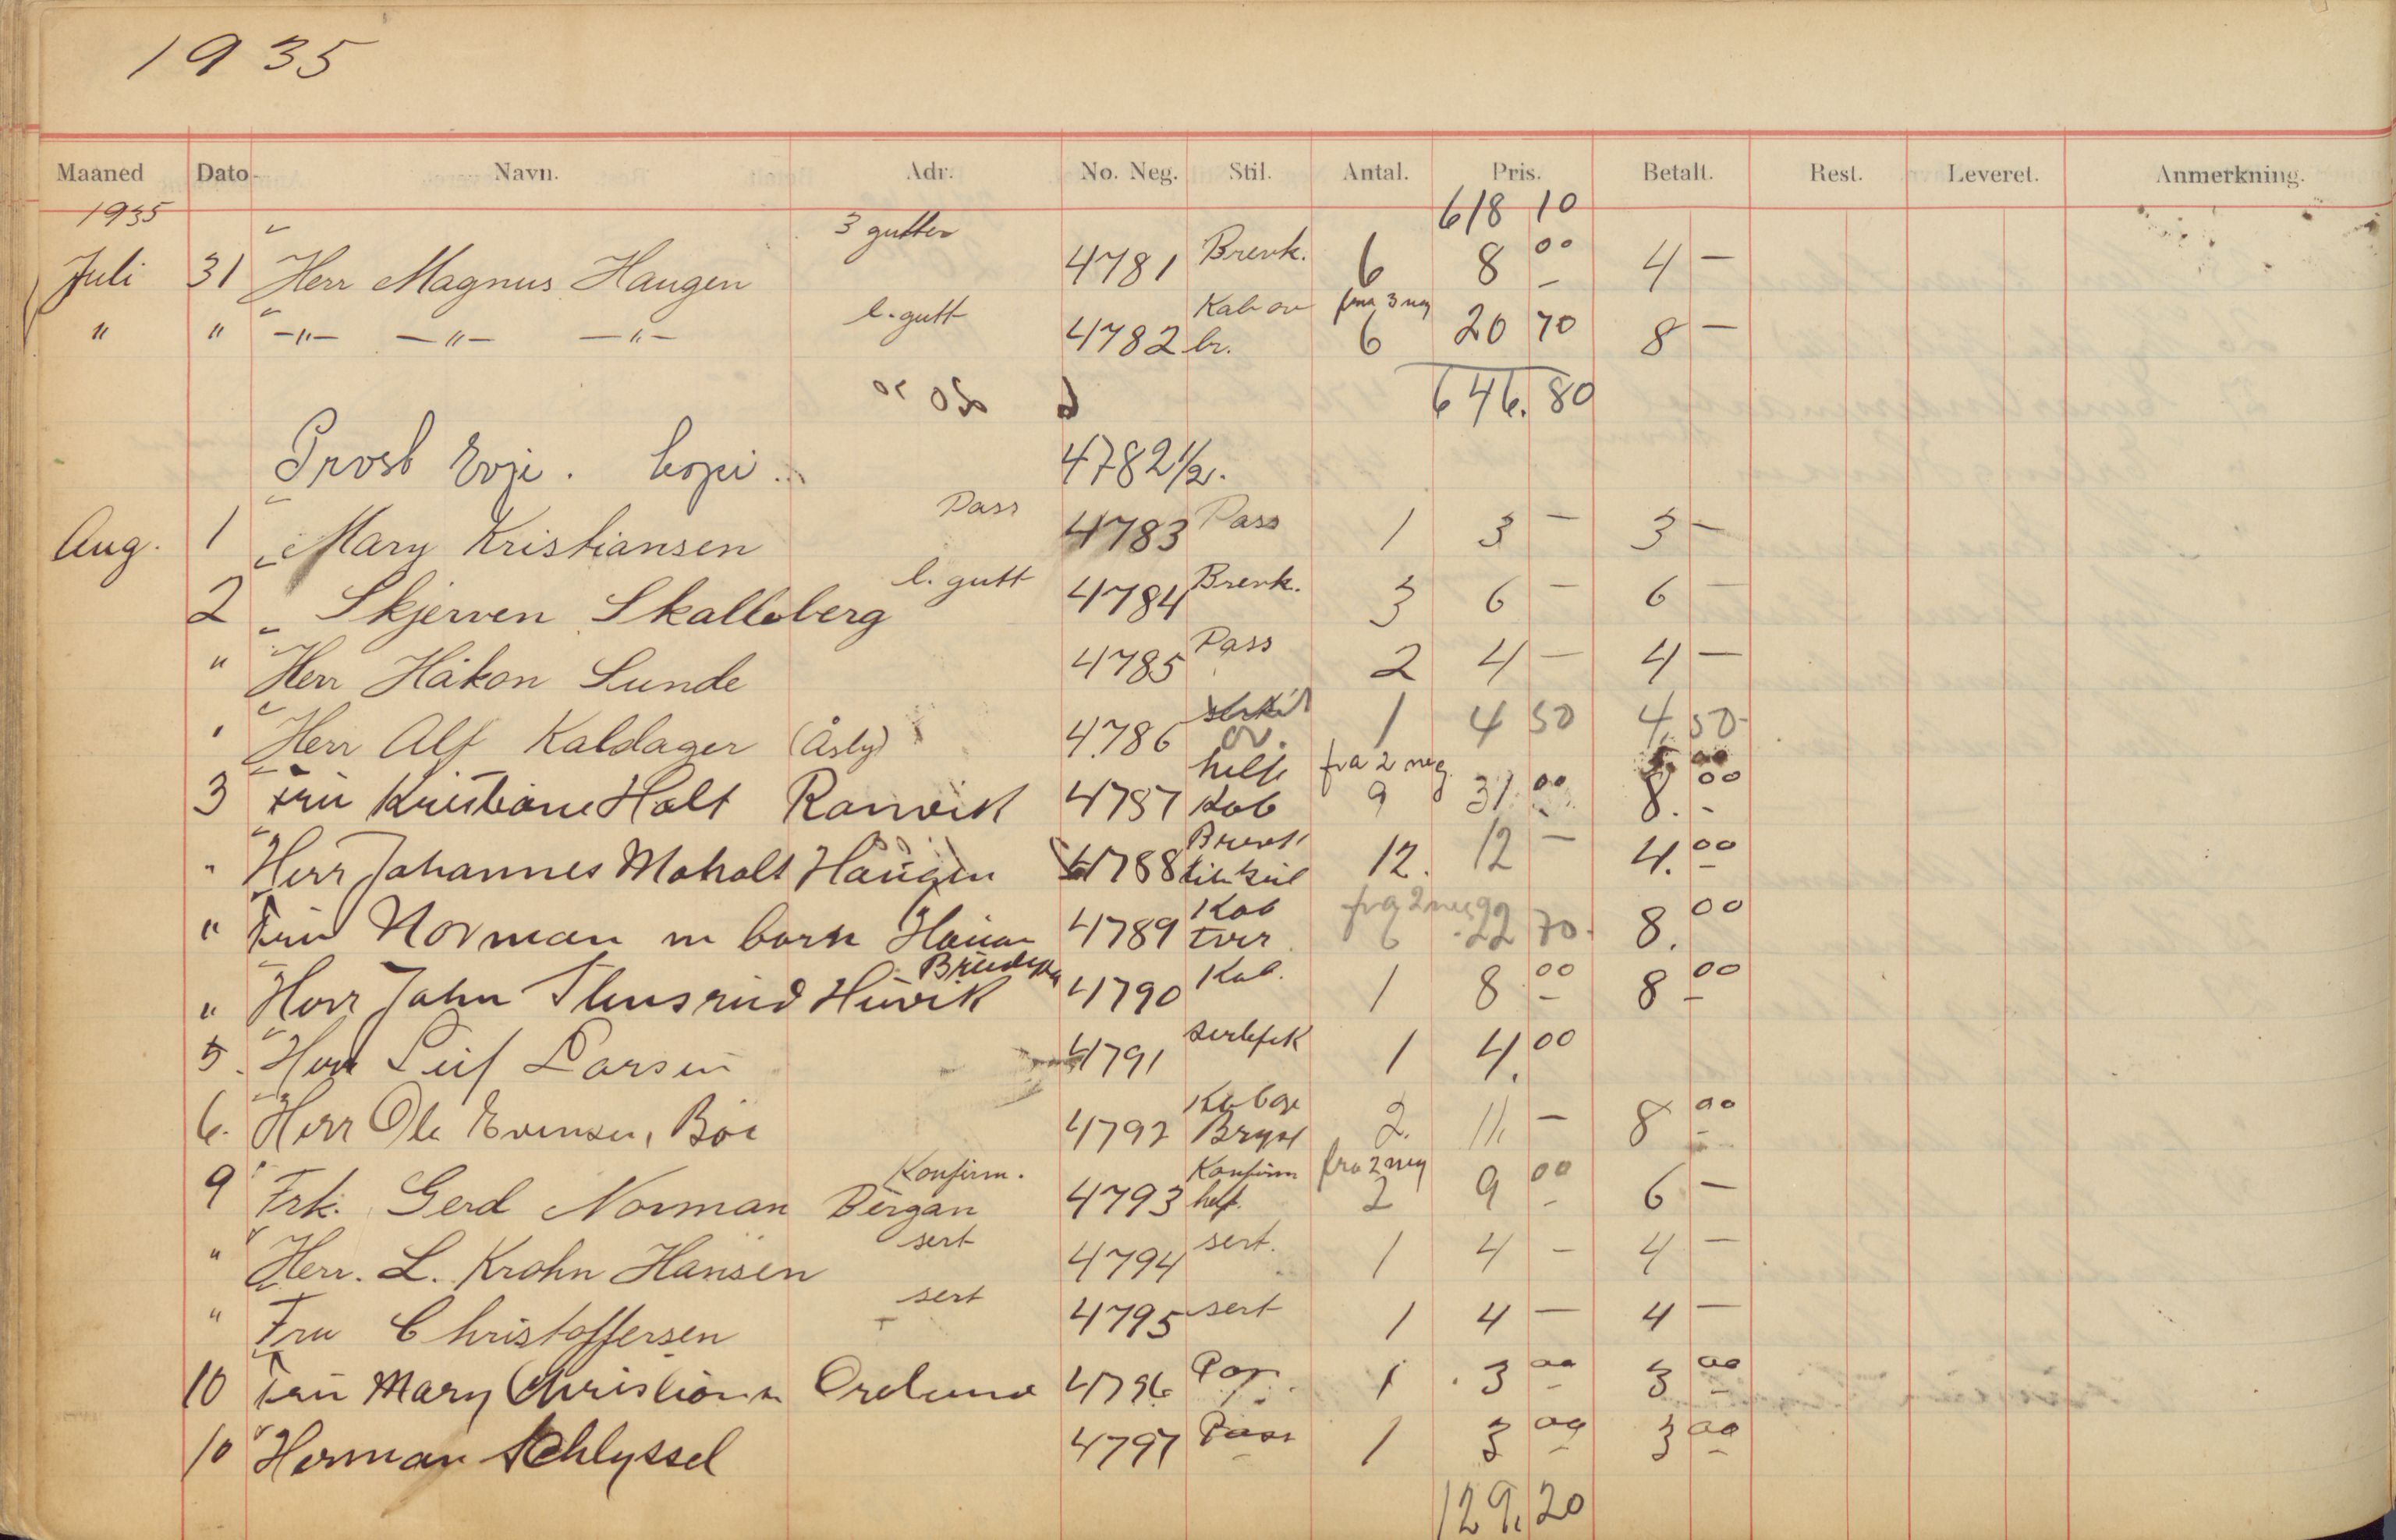 1935
Maaned Dato Navn. Adr. No. Neg. Stil. Antal. Pris. Betalt. Rest. Leveret. Anmerkning.
1935 618 10
3 gutter
Juli 31 Herr Magnus Haugen 4781 Brevk. 6 8 00 4 —
l. gutt Kab ov fra 3 neg
" " —"— —"— —"— 4782 br. 6 20 70 8 —
646.80
Prost Evje. kopi. 4782 1/2.
Pass
Aug. 1 Mary Kristiansen 4783 Pass 1 3 — 3 —
l. gutt
2 Skjerven Skalleberg 4784 Brevk. 3 6 — 6 —
" Herr Håkon Lunde 4785 Pass 2 4 — 4 —
" Herr Alf Kaldager (Åsly) 4786 ov. 1 4 50 4.50
helf fra 2 neg.
3 Fru Kristiane Holt Ranvik 4787 Kab 9 31.00 8.00
Brevk
" Herr Johannes Moholt Haugen 4788 12. 12 — 4.00
Kab fra 2 neg
" Fru Norman m barn Haugan 4789 tver 6 22 70 8.00
Brudep
" Herr John Stensrud Huvik 4790 Kab. 1 8 00 8 00
5. Herr Leif Larsen 4791 sertifik 1 4.00
6. Herr Ole Evensen, Bøe 4792 Bryst 2. 11. — 8 00
Konfirm. Konfirm fra 2 neg
9 Frk. Gerd Norman Bergan 4793 helf. 2 9 00 6 —
sert
" Herr. L. Krohn Hansen 4794 sert. 1 4 — 4 —
sert
" Fru Christoffersen 4795 sert 1 4 — 4 —
10 Fru Mary Christians 4796 Pas 1 3 00 3 00
10 Herman Schlyssel 4797 Pass 1 3 00 3 00
129.20